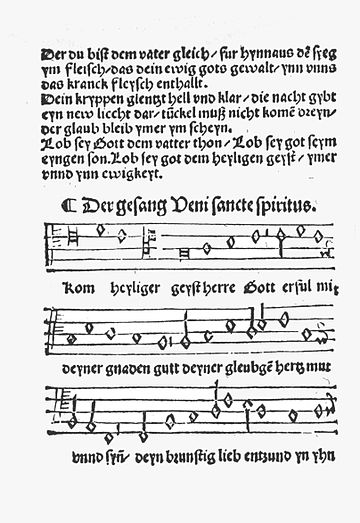 Der du bist dem vater gleich / fur hynnaus dē syeg
ym fleisch / das dein ewig gots gewalt / ynn vnns
das kranck fleysch enthallt.
Dein kryppen glentzt hell vnd klar / die nacht gybt
eyn new liecht dar / tückel muß nicht komē dreyn /
der glaub bleib ymer ym scheyn.
Lob sey Gott dem vatter thon / Lob sey got seym
eyngen son. Lob sey got dem heyligen geyst / ymer
vnnd ynn ewigkeyt.
¶ Der gesang Veni sancte spiritus.
Kom heyliger geyst herre Gott erful mit
deyner gnaden gutt deyner gleubgē hertz mut
vnnd syn̄ deyn brunstig lieb entzund yn yhn